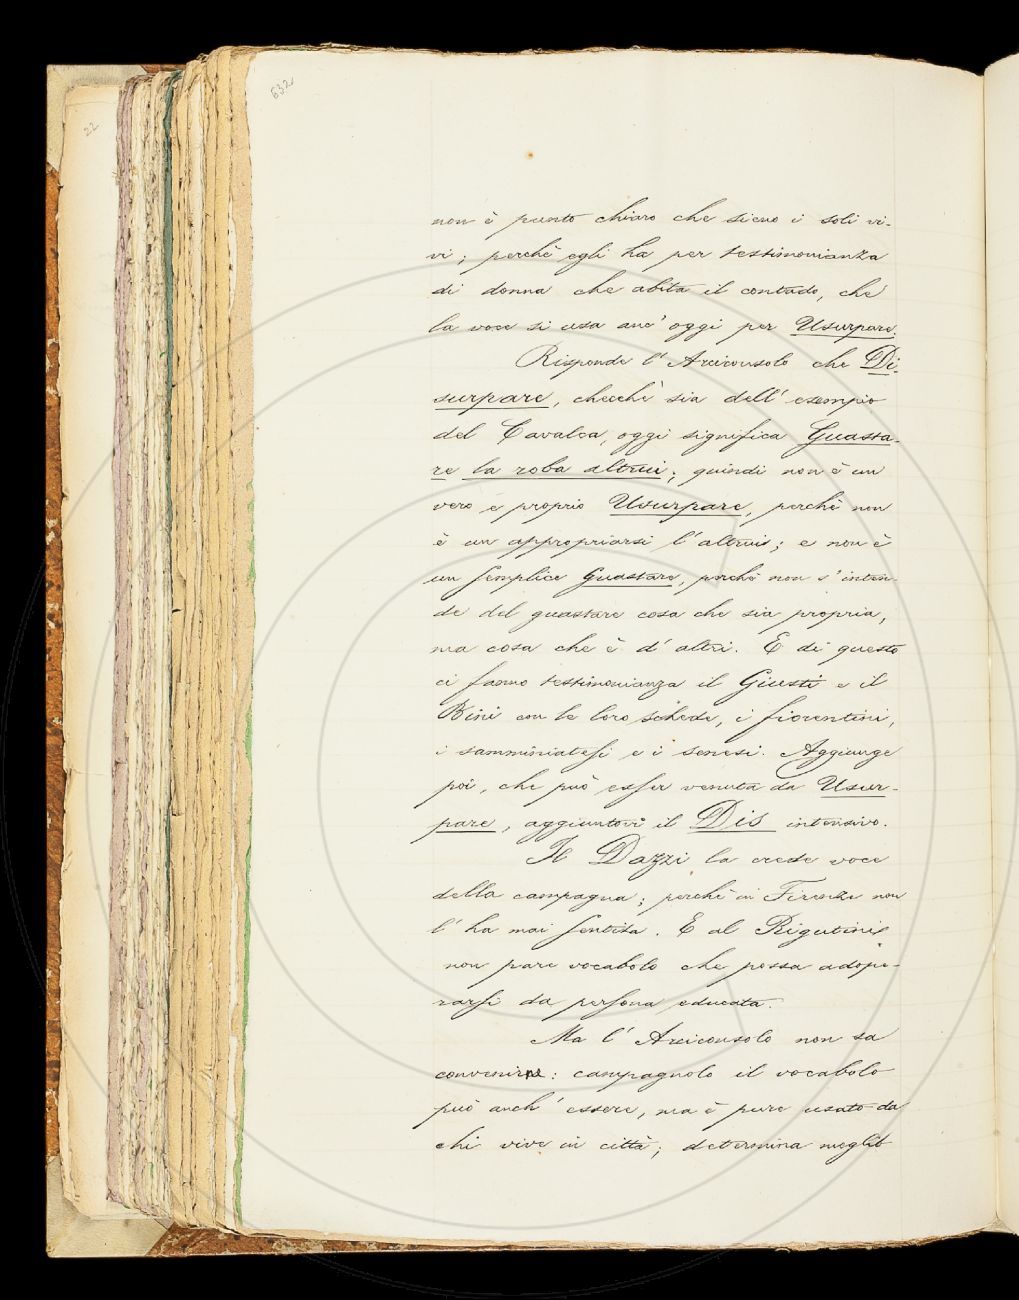 632
22
non è punto chiaro che sieno i soli vi-
vi; perchè egli ha per testimonianza
di donna che abita il contado, che
la voce si usa anc' oggi per Usurpare.
Risponde l' Arciconsolo che Di-
surpare, checchè sia dell' esempio
del Cavalca, oggi significa Guasta-
re la roba altrui; quindi non è un
vero e proprio Usurpare, perchè non
è un appropriarsi l' altrui; e non è
un semplice Guastare, perchè non s' inten-
de del guastare cosa che sia propria,
ma cosa che è d' altri. E di questo
ci fanno testimonianza il Giusti e il
Bini con le loro schede, i fiorentini,
i samminiatesi e i senesi. Aggiunge
poi, che può esser venuta da Usur-
pare, aggiuntovi il Dis intensivo.
Il Dazzi la crede voce
della campagna; perchè in Firenze non
l' ha mai sentita. E al Rigutini
non pare vocabolo che possa adope-
rarsi da persona educata.
Ma l' Arciconsolo non sa
convenirne: campagnolo il vocabolo
può anch' essere, ma è pure usato da
chi vive in città; determina meglio